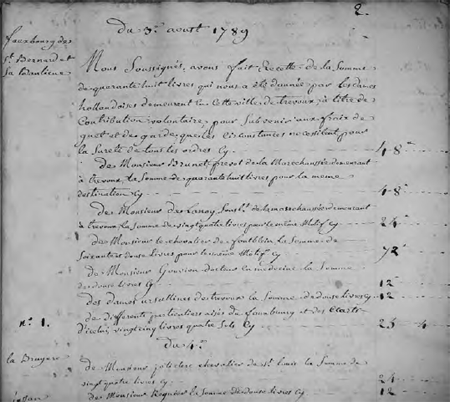 2
du 3e. aoust 1789
fauxbourg de
st. Bernard et
Nous Soussignés, avons fait Recette de la Somme
de quarante huit livres qui nous a été donnée par les dames
hollandoises demeurant en cette ville de trevoux, a titre de
Contribution volontaire, pour Subvenir aux fraix de
guet et de garde que les Circonstances necessitent pour
la Sureté de tous les ordres Cy 48
De Monsieur Brunet prevot de la Marechaussée demeurant
a trevoux la Somme de quarante huit livres pour la même
destination Cy 48
De Monsieur de la marechaussée demeurant
a trevoux la Somme de vingt quatre livres pour le même Motif Cy 24
de Monsieur le chevalier de la Somme de
Soixante et douze Livres pour le même Motif Cy 72
de Monsieur docteur en médecine la Somme
de douze livres Cy 12
des dames ursulines de trevoux la Somme de douze livres Cy 12
de différents particuliers du fauxbourg et des
vingt cinq livres quatre Sols Cy 25 4
n°. 1.
du 4e.
la Bruyere
De Monsieur chevalier de st. Louis la Somme de
vingt quatre livres Cy 24
de Monsieur la Somme de douze livres Cy 12